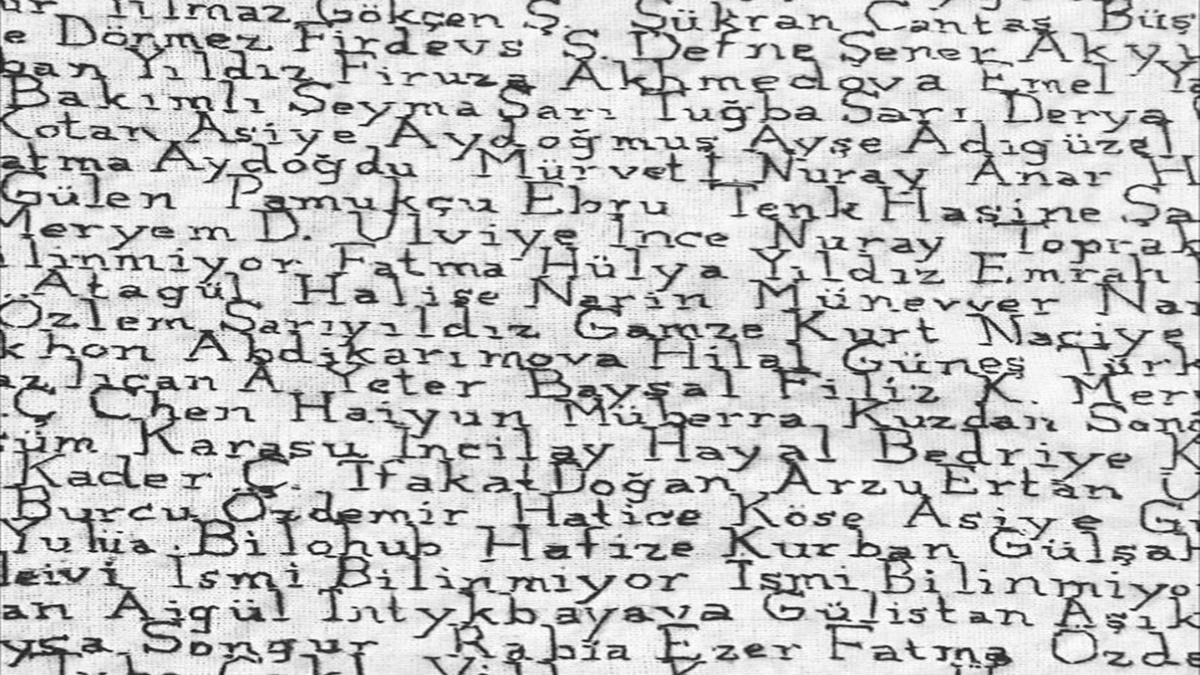 Yılmaz Gökçen Ş. Şükran Cantaş Büş
e Dönmez Firdevs Ş. Defne Şener Akyı
ban Yıldız Firuza Akhmedova Emel Ya
Bakımlı Şeyma Sarı Tuğba Sarı Derya
Kotan Asiye Aydoğmuş Ayşe Adıgüzel
atma Aydoğdu Mürvet I. Nuray Anar H
Gülen Pamukçu Ebru Tenk Hasine Şa
Meryem D. Ulviye İnce Nuray Toprak
ilinmiyor Fatma Hülya Yıldız Emrah
Atagül Halise Narin Münevver Nar
Özlem Sarıyıldız Gamze Kurt Naciye
khon Abdikarımova Hilal Güneş Türk
az lıcan A. Yeter Baysal Filiz K. Mer
Ç Chen Haiyun Müberra Kuzdan Son
üm Karasu İncilay Hayal Bedriye K
Kader Ç. İfakat Doğan Arzu Ertan
Burcu Özdemir Hatice Köse Asiye G
Yulıia Bilohub Hafize Kurban Gülşa
leivi İsmi Bilinmiyor İsmi Bilinmiyo
an Aigül Intykbayava Gülistan Aşık
ysa Songur Rabia Ezer Fatma Özde